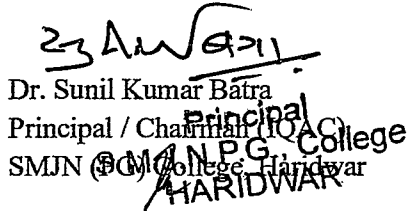 Dr. Sunil Kumar Batra
Principal / Chairman (IQAC)
SMJN (PG) College, Haridwar
Principal
S.M.J.N.P.G. College
HARIDWAR